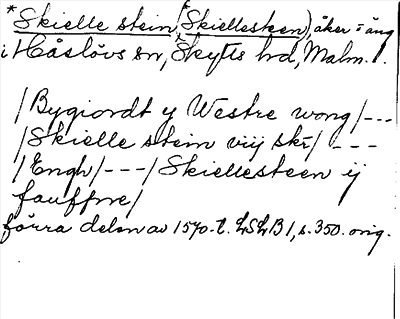 *Skielle stein,(*Skiellesteen), åker o äng
i Håslövs sn, Skytts hd, Malm. l.
/Bygiordt y Westre wong/---
/Skielle stein viij skr/ ---
/Engh/---/Skiellesteen ij
fauffne/
förra delen av 1570-t. LSLB 1, s. 350. orig.